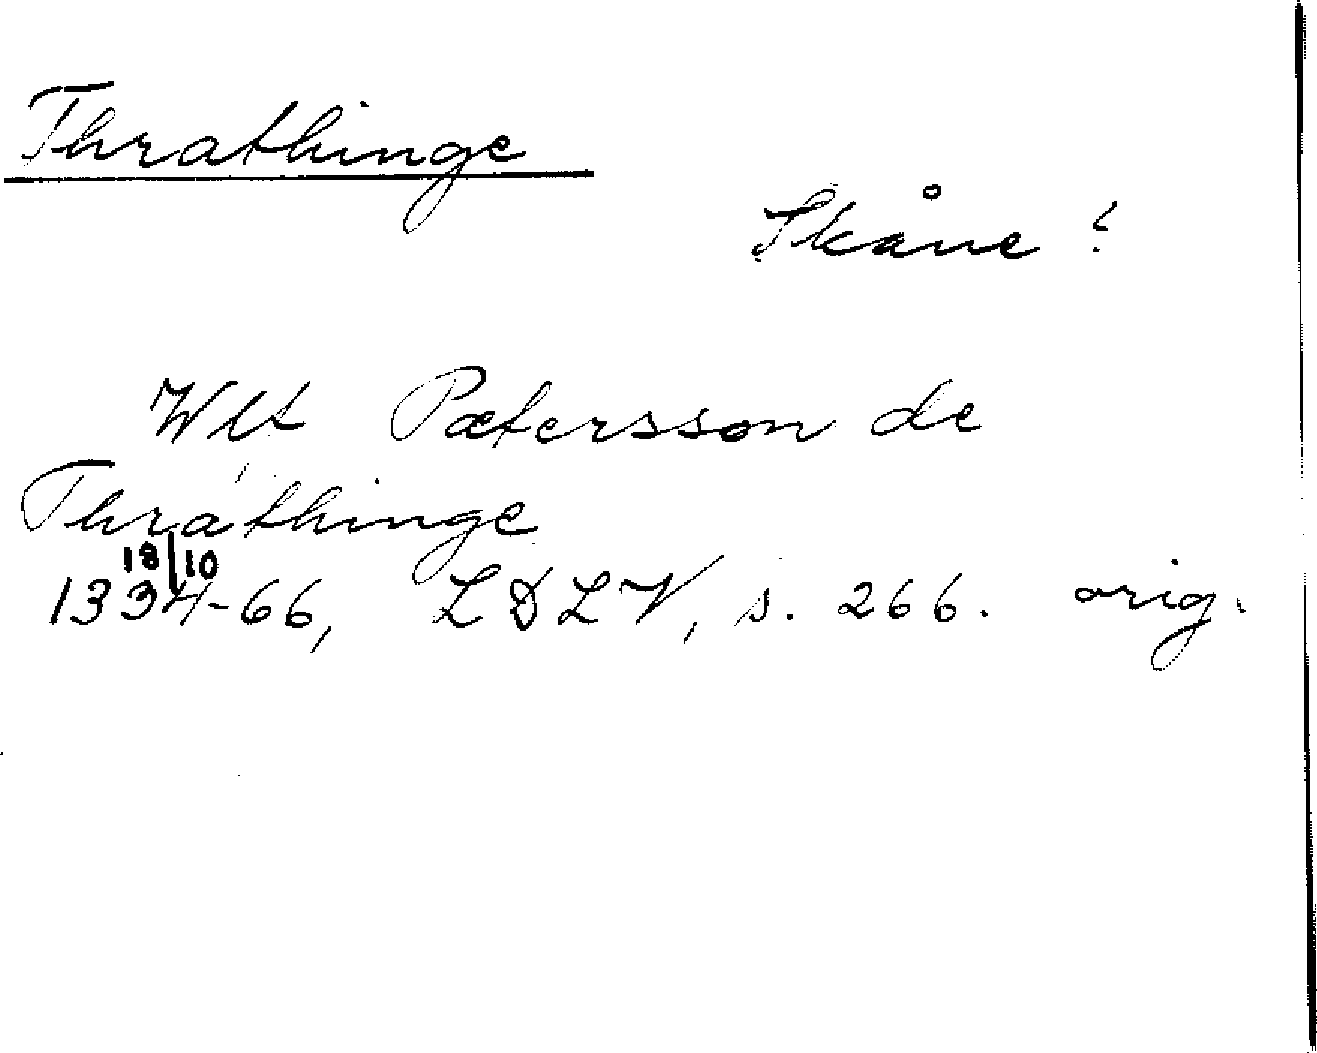 Thrathinge
Skåne ?
Wlt Pætersson de
Thrathinge
18/10
1334-66, LDLV, s. 266. orig.